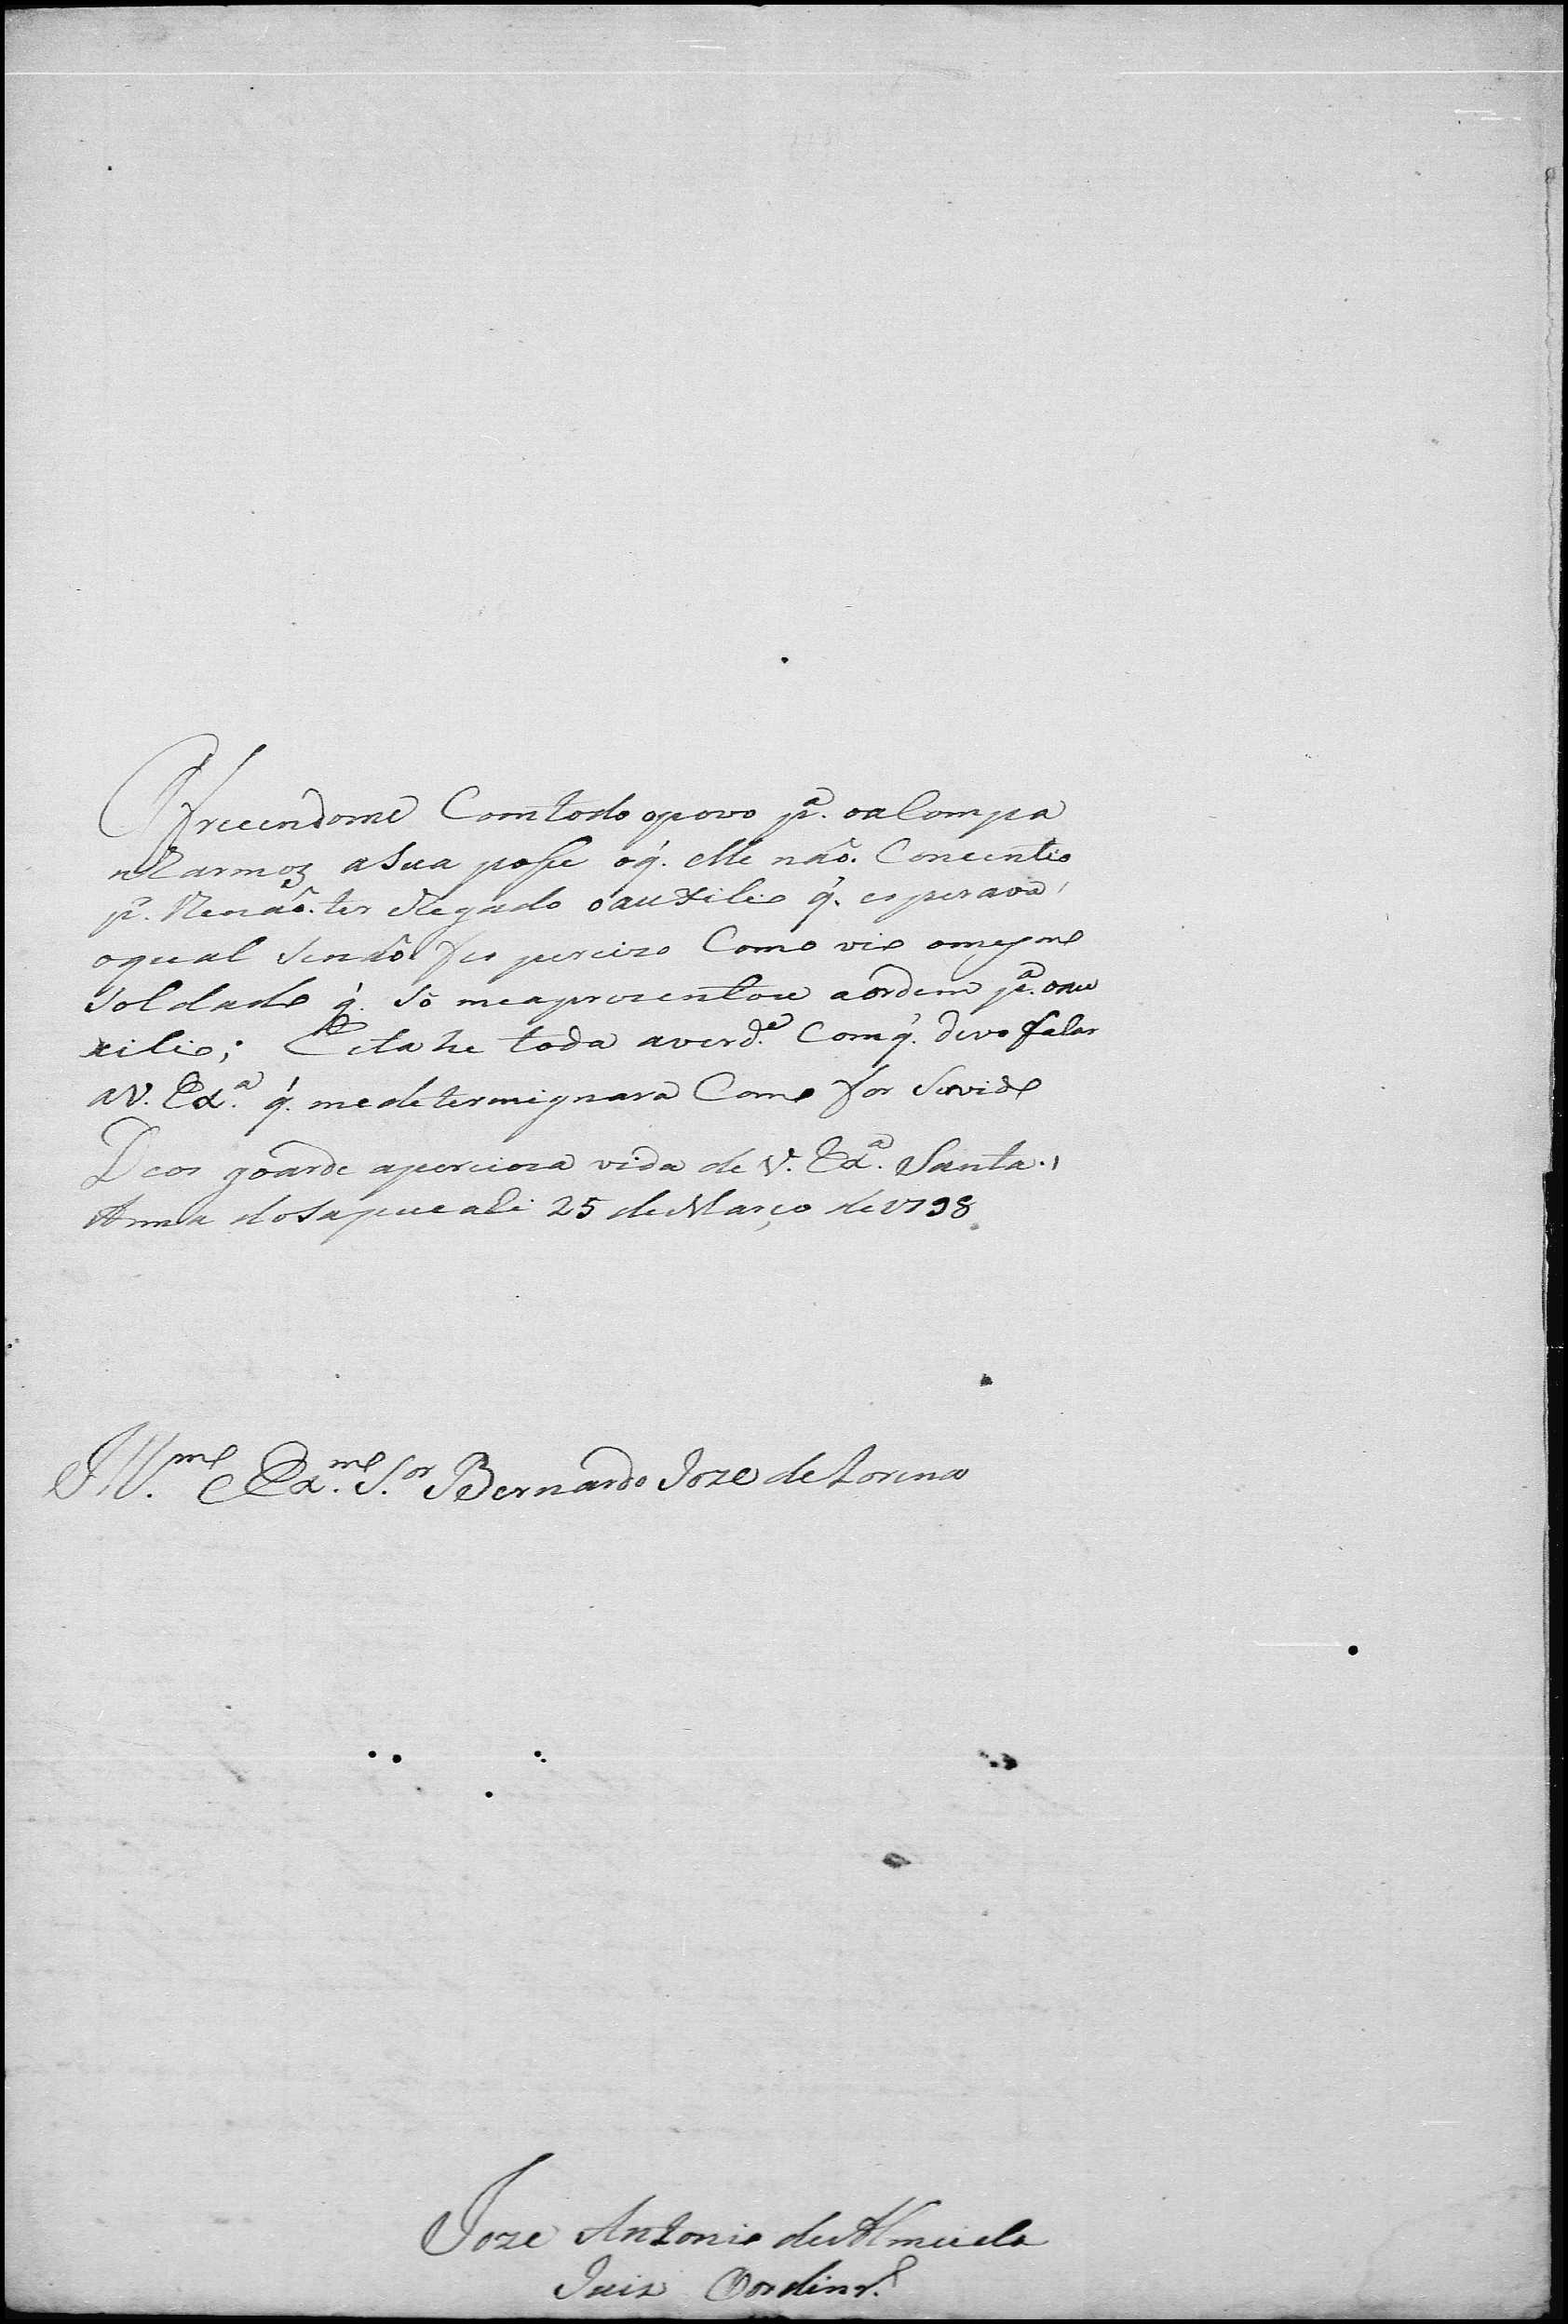 Ofrecendome Com todo o povo p.ª o a Compa
nharmoz a Sua posse o q́. elle não. Concentio
p.ª lhe não. ter chegado o auxilio q́. esperava,
o qual Se não fes percizo Como vio o mesmo
Soldado q́. Só me aprezentou a ordem p.ª o au
xilio; Esta he toda a verd.e Com q́. devo falar
a V. Ex.ª q́. me determignara Como for Servido
Deos goarde a perciosa vida de V. Ex.ª Santa.,
Anna do Sapucahi 25 de Março de 1798
Ill.mo e Ex.mo S.or Bernardo Joze de Lorena
Joze Antonio de Almeida
Juiz Oordinr.º